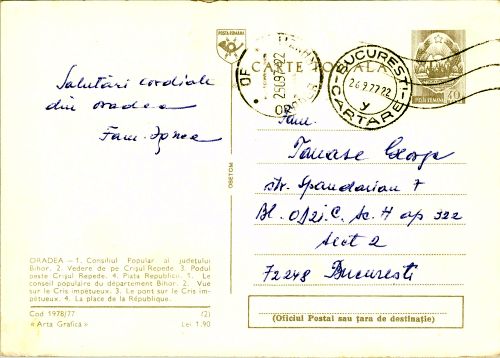 POSTA ROMANA
CARTE POSTALA
BUCURESTI
26.9.77.22
CARTARE
POSTA ROMANA
40
Salutări cordiale
din oradea
Fam.
Fam.
Tanase George
str. Spandarian 7
Bl. Sc. H ap 322
Sect 2
72248 Bucuresti
OBETOM
ORADEA — 1. Consiliul Popular al județului
Bihor. 2. Vedere de pe Crișul Repede. 3. Podul
peste Crișul Repede. 4. Piața Republicii. 1. Le
conseil populaire du département Bihor. 2. Vue
sur le Cris impétueux. 3. Le pont sur le Cris im-
pétueux. 4. La place de la République.
Cod 1978/77 (2)
«Arta Grafică» Lei 1,90
(Oficiul Postal sau țara de destinație)